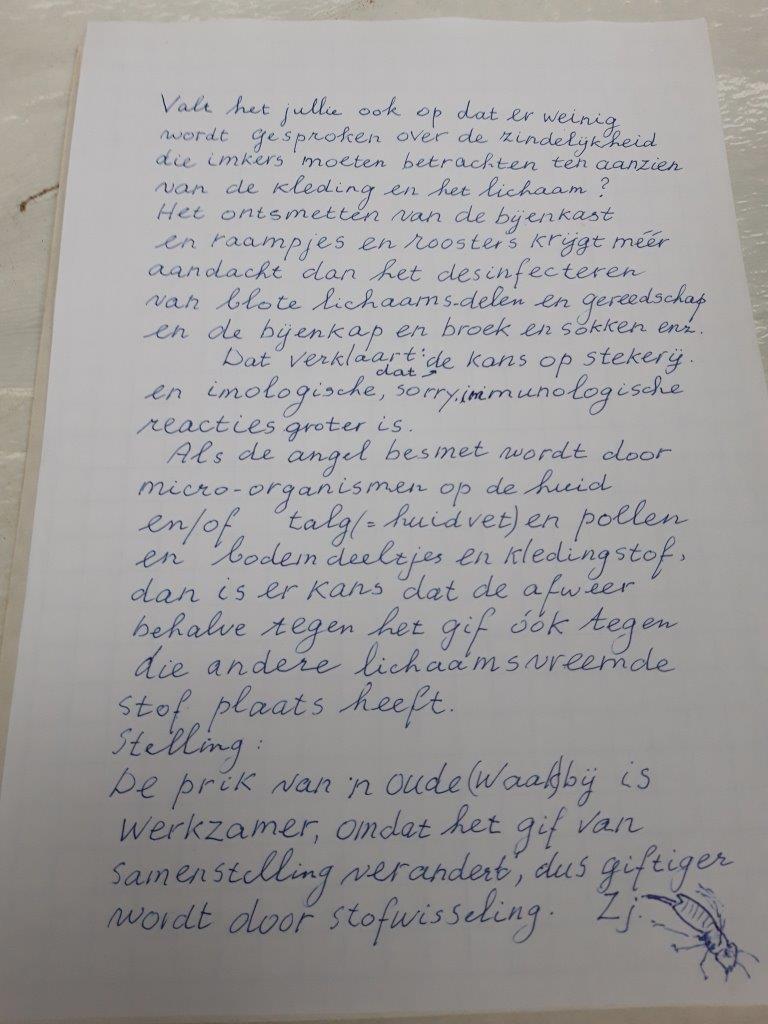 Valt het jullie ook op dat er weinig
wordt gesproken over de zindelijkheid
die imkers moeten betrachten ten aanzien
van de kleding en het lichaam?
Het ontsmetten van de bijenkast
en raampjes en roosters krijgt méér
aandacht dan het desinfecteren
van blote lichaams-delen en gereedschap
en de bijenkap en broek en sokken enz.
Dat verklaart: de kans op stekerij.
dat
en imologische, sorry, immunologische
reacties groter is.
Als de angel besmet wordt door
micro-organismen op de huid
en/of talg (= huidvet) en pollen
en bodemdeeltjes en kledingstof,
dan is er kans dat de afweer
behalve tegen het gif óók tegen
die andere lichaamsvreemde
stof plaats heeft.
Stelling:
De prik van 'n oude (Waak)bij is
werkzamer, omdat het gif van
samenstelling verandert, dus giftiger
wordt door stofwisseling. Zj.